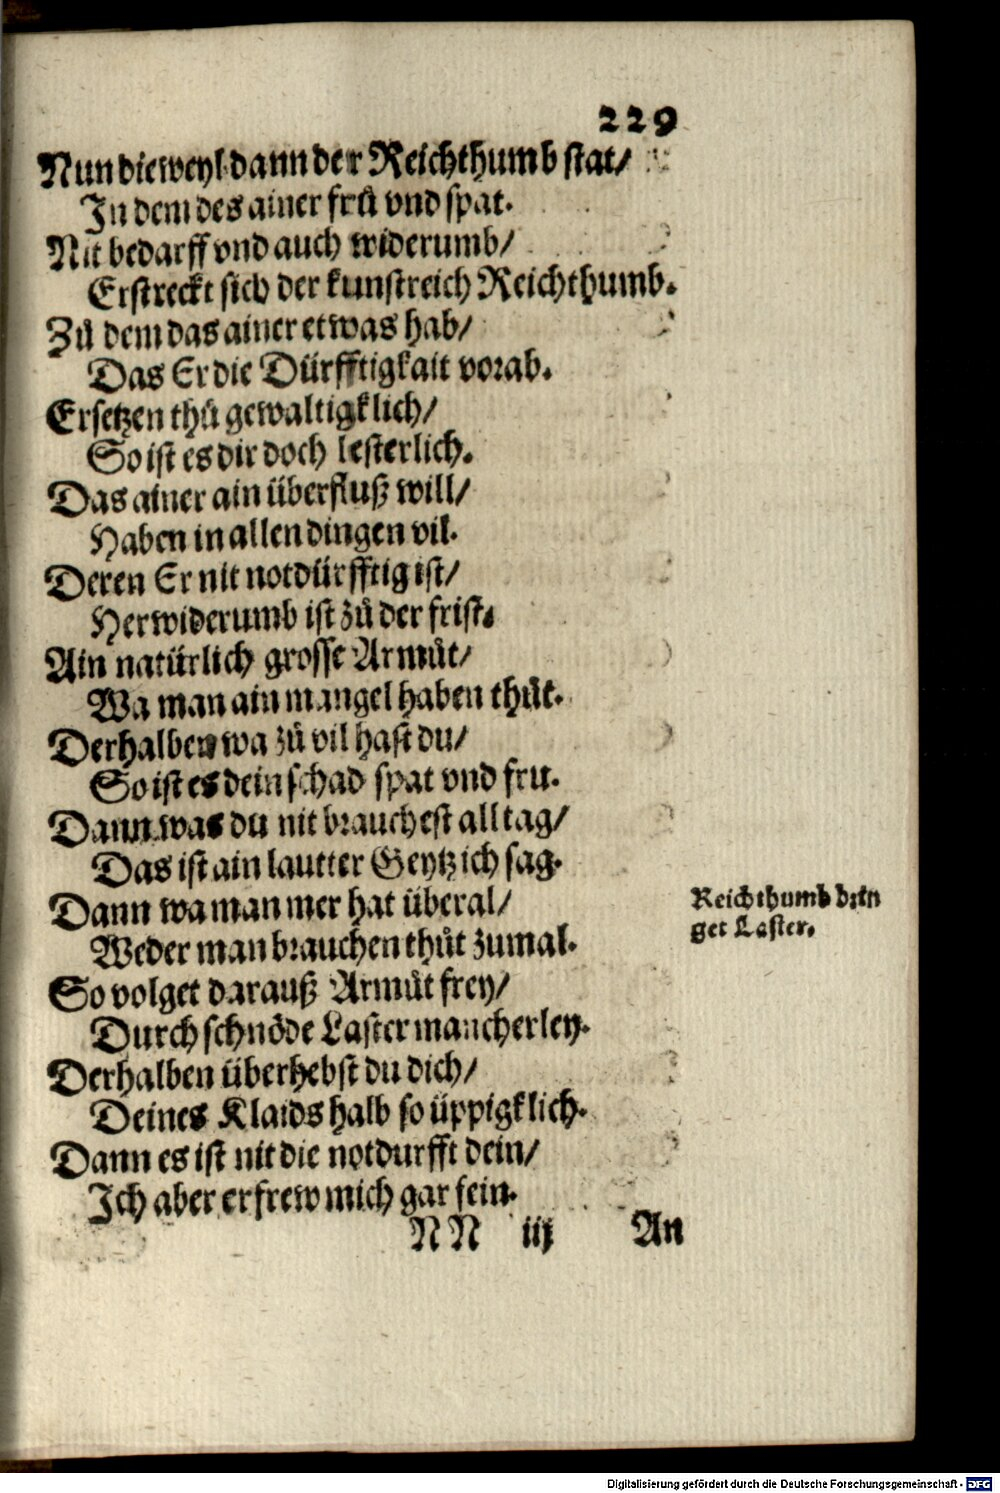 229
Nun dieweyl dann der Reichthumb stat/
In dem des ainer frů vnd spat.
Nit bedarff vnd auch widerumb/
Erstreckt sich der kunstreich Reichthumb.
Zů dem das ainer etwas hab/
Das Er die Dürfftigkait vorab.
Ersetzen thů gewaltigklich/
So ist es dir doch lesterlich.
Das ainer ain überfluß will/
Haben in allen dingen vil.
Deren Er nit notdürfftig ist/
Herwiderumb ist zů der frist.
Ain natürlich grosse Armůt/
Wa man ain mangel haben thůt.
Derhalben wa zů vil hast du/
So ist es dein schad spat vnd fru.
Dann was du nit brauchest all tag/
Das ist ain lautter Geytz ich sag.
Dann wa man mer hat überal/
Weder man brauchen thůt zumal.
Reichthumb brin
get Laster.
So volget darauß Armůt frey/
Durch schnöde Laster mancherley.
Derhalben überhebst du dich/
Deines Klaids halb so üppigklich.
Dann es ist nit die notdurfft dein/
Ich aber erfrew mich gar fein.
NN iij An
Digitalisierung gefördert durch die Deutsche Forschungsgemeinschaft - DFG